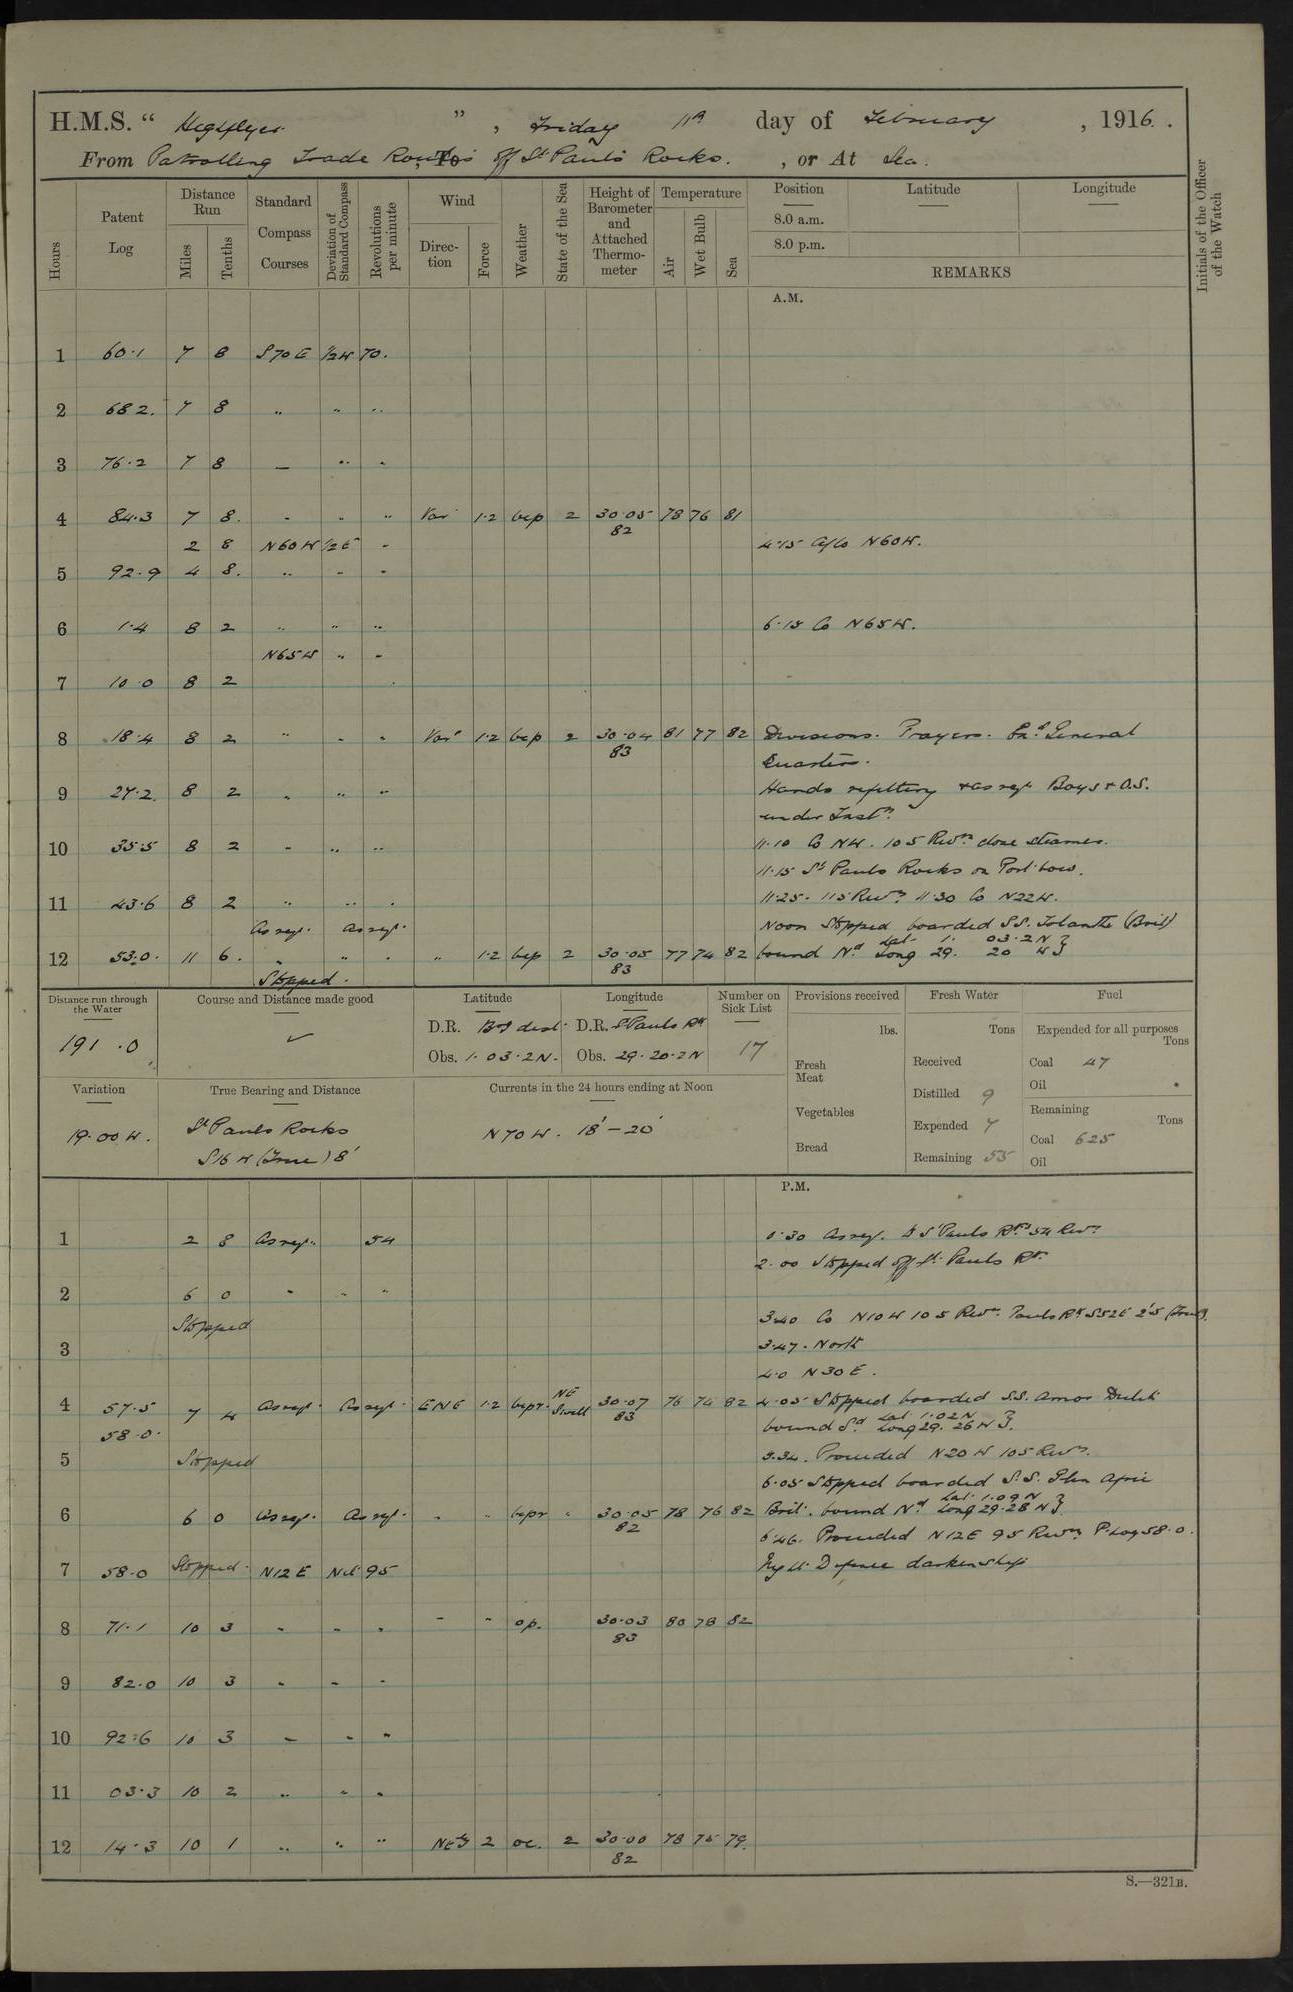 H.M.S. “ Highflyer ” , Friday 11th day of February , 1916 .
From Patrolling Trade Routes , To off St Paul's Rocks . , or At Sea .
Hours
Patent Log
Distance Run
Miles
Tenths
Standard Compass Courses
Deviation of Standard Compass
Revolutions per minute
Wind
Direction
Force
Weather
State of the Sea
Height of Barometer and Attached Thermometer
Temperature
Air
Wet Bulb
Sea
Position
Latitude
Longitude
8.0 a.m.
8.0 p.m.
REMARKS
Initials of the Officer of the Watch
A.M.
1 60.1 7 8 S70E ½W 70.
2 68 2. 7 8 " " "
3 76.2 7 8 — " "
4 84.3 7 8. " " " Var 1.2 bcp 2 30.05 78 76 81
82
2 8 N60W ½E " 4.15 a/co N60W.
5 92.9 4 8. " " "
6 1.4 8 2 " " " 6.15 Co N65W.
N65W " "
7 10.0 8 2
8 18.4 8 2 " " " Var 1.2 bcp 2 30.04 81 77 82 Divisions. Prayers. Exd General
83
Quarters.
9 27.2. 8 2 " " " Hands refitting & as req. Boys & O.S.
under Instn.
10 35.5 8 2 " " " 11.10 Co NW. 105 Revns close steamer.
11.15 St Pauls Rocks on Port bow.
11 43.6 8 2 " " " 11.25. 115 Revns 11.30 Co N22W.
As req. As req. Noon Stopped boarded S.S. Iolanthe (Brit)
12 53.0. 11 6. " " " " 1.2 bcp 2 30.05 77 74 82 bound Nd Lat 1. 03.2N Long 29. 20 W
83
Stopped.
Distance run through the Water
191 .0
Course and Distance made good
Latitude
D.R.
Obs. 1.03.2N.
Longitude
D.R. St Pauls Rk
Obs. 29.20.2N
Number on Sick List
17
Provisions received
lbs.
Fresh Meat
Vegetables
Bread
Fresh Water
Tons
Received
Distilled 9
Expended 7
Remaining 55
Fuel
Expended for all purposes
Tons
Coal 47
Oil
Remaining
Tons
Coal 625
Oil
Variation
19.00 W.
True Bearing and Distance
St Pauls Rocks
S16W (True) 8'
Currents in the 24 hours ending at Noon
N70W. 18' – 20'
P.M.
1 2 8 As req. 54 0.30 As req. to St Pauls Rks 54 Revns
2.00 Stopped off St. Pauls Rk.
2 6 0 " " "
Stopped 3.40 Co N10W 105 Revns Pauls Rk S52E 2'.5 (True).
3 3.47. North
4.0 N30E.
4 57.5 7 4 As req. As req. ENE 1.2 bcpr. NE Swell 30.07 76 74 82 4.05 Stopped boarded S.S. Amor Dutch
83
58.0. bound Sd Lat 1.02N Long 29. 26W.
5 Stopped 5.34. Proceeded N20W 105 Revns.
6.05 Stopped boarded S.S. Glen
6 6 0 As req. As req. " " bcpr " 30.05 78 76 82 Brit. bound Nd Lat. 1.09N Long 29.28W
82
6.46. Proceeded N12E 95 Revns P. Log 58.0.
7 58.0 Stopped. N12E Nil 95 Night Defence darken ship
8 71.1 10 3 " " " " " op. 30.03 80 78 82
83
9 82.0 10 3 " " "
10 92.6 10 3 " " "
11 03.3 10 2 " " "
12 14.3 10 1 " " " NEly 2 oc. 2 30.00 78 75 79.
82
S.—321B.